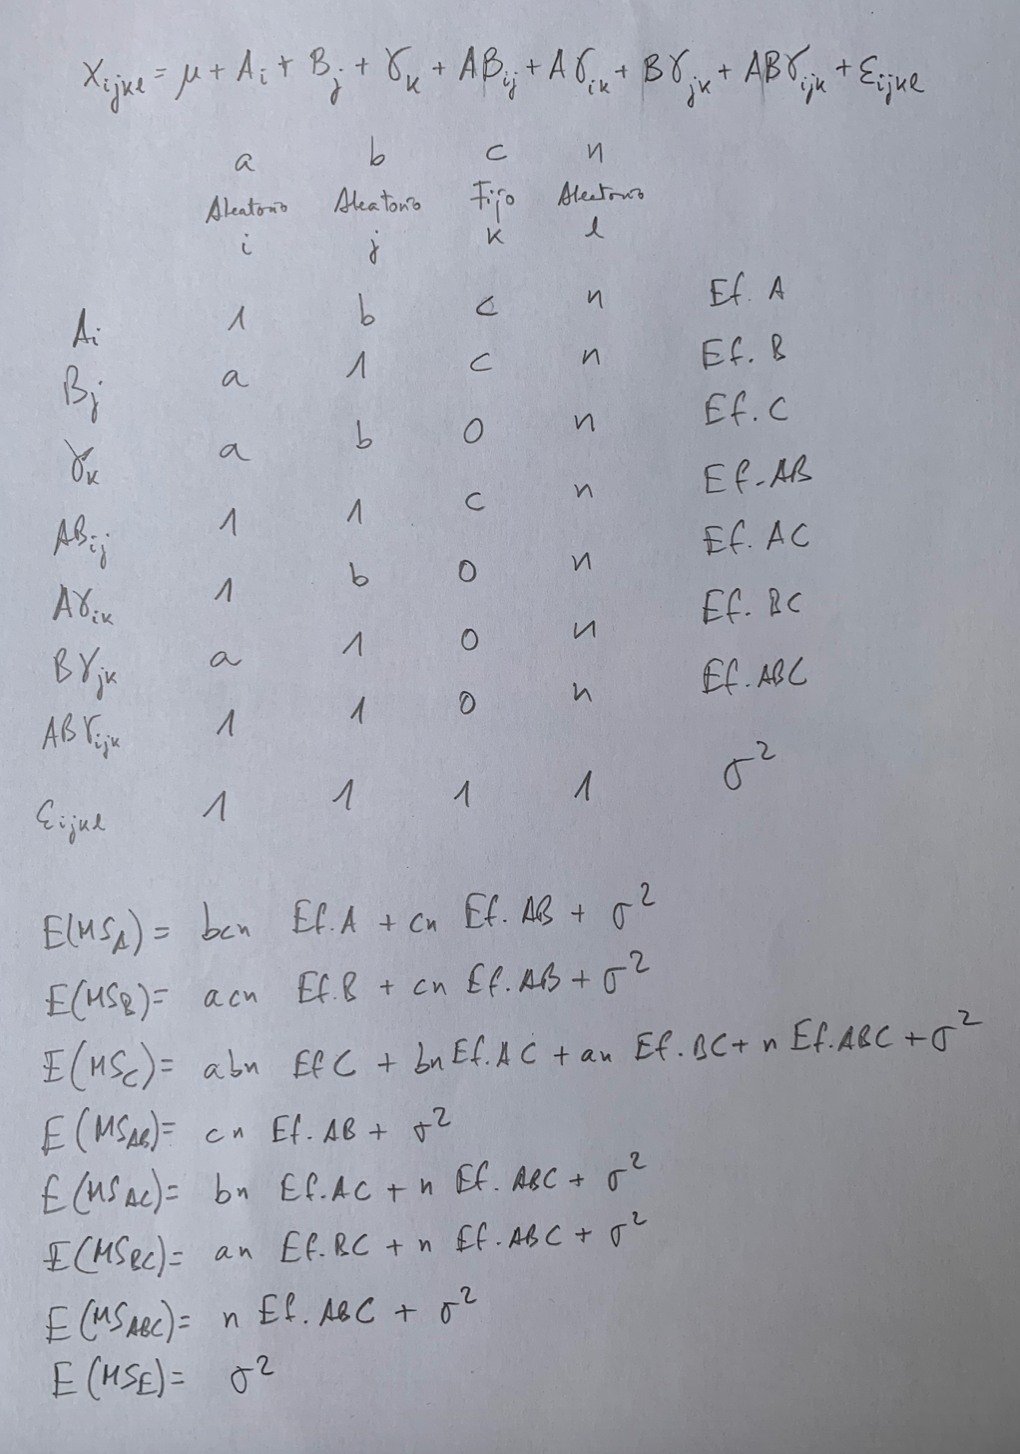 X_ijkl = μ + A_i + B_j + γ_k + AB_ij + Aγ_ik + Bγ_jk + ABγ_ijk + ε_ijkl
a b c n
Aleatorio Aleatorio Fijo Aleatorio
i j k l
A_i 1 b c n Ef. A
B_j a 1 c n Ef. B
γ_k a b 0 n Ef. C
AB_ij 1 1 c n Ef. AB
Aγ_ik 1 b 0 n Ef. AC
Bγ_jk a 1 0 n Ef. BC
ABγ_ijk 1 1 0 n Ef. ABC
ε_ijkl 1 1 1 1 σ²
E(MS_A) = bcn Ef. A + cn Ef. AB + σ²
E(MS_B) = acn Ef. B + cn Ef. AB + σ²
E(MS_C) = abn Ef C + bn Ef. AC + an Ef. BC + n Ef. ABC + σ²
E(MS_AB) = cn Ef. AB + σ²
E(MS_AC) = bn Ef. AC + n Ef. ABC + σ²
E(MS_BC) = an Ef. BC + n Ef. ABC + σ²
E(MS_ABC) = n Ef. ABC + σ²
E(MS_E) = σ²